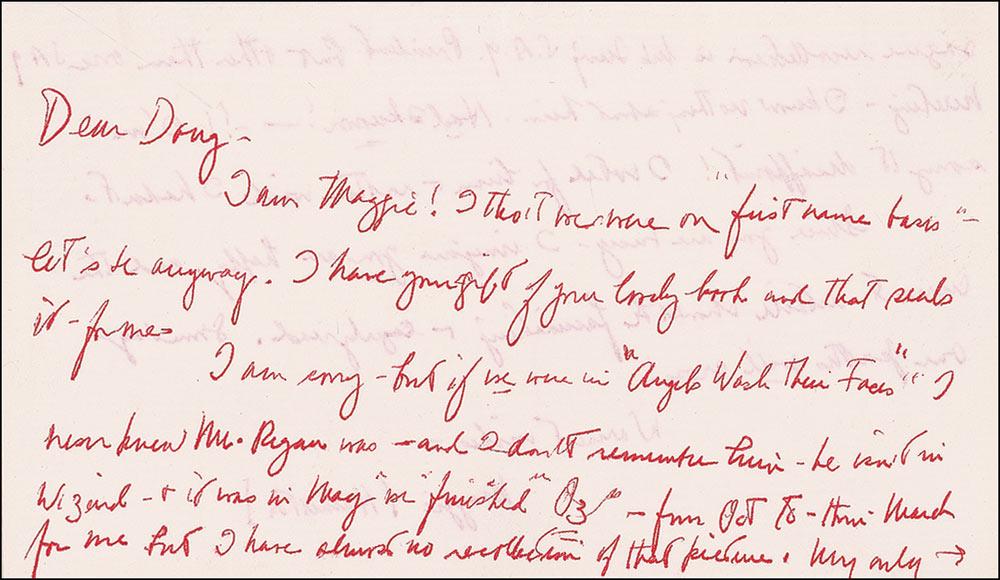 Dear Doug -
I am Maggie! I tho't we were on "first name basis" -
let's be anyway. I have your gift of your lovely book and that seals
it - for me -
I am sorry - but if we were in "Angels Wash Their Faces" I
never knew Mr. Regan was - and I don't remember him - he isn't in
Wizard - + it was in May we "finished" "Oz" - from Oct to - thru March
for me but I have almost no recollection of that picture. My only →